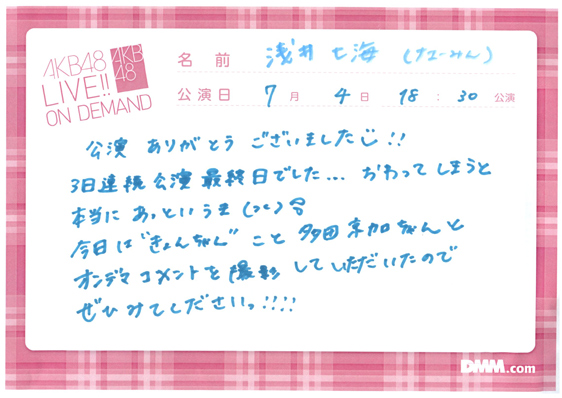 AKB48
LIVE!!
ON DEMAND
AKB
48
名前 浅井七海 (なーみん)
公演日 7月 4日 18:30 公演
公演 ありがとう ございました!!
3日連続 公演 最終日でした... おわって しまうと
本当に あっというま
今日は "きょんちゃん" こと 多田京加ちゃんと
オンデマ コメントを 撮影 して いただいたので
ぜひみてくださいっ!!!!
DMM.com